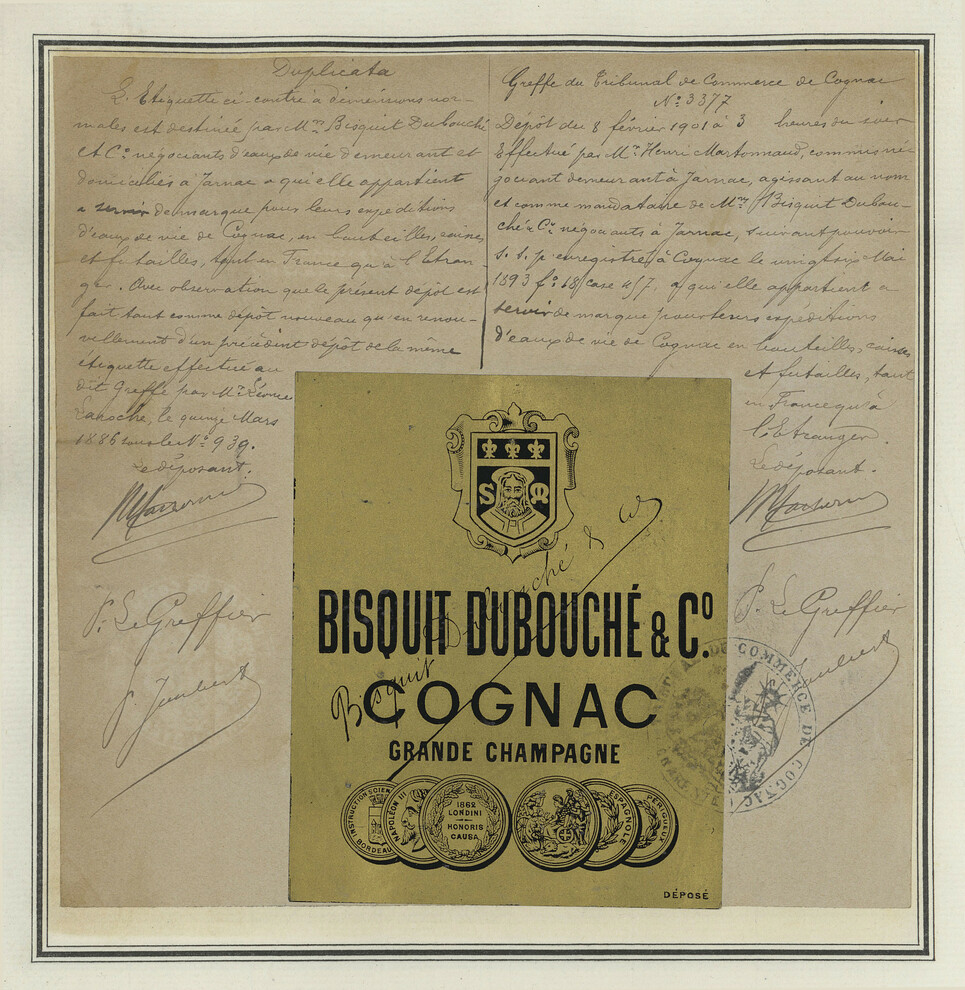 Duplicata
L'Etiquette ci-contre à dimensions nor-
males est destinée par Mrs Bisquit Dubouché
et Co négociants d'eaux de vie demeurant et
domiciliés à Jarnac a qui elle appartient
a servir de marque pour leurs expeditions
d'eaux de vie de Cognac, en bouteilles, caisses
et futailles, tant en France qu'à l'Etran-
ger. Avec observation que le présent dépôt est
fait tant comme dépôt nouveau qu'en renou-
vellement d'un précédent dépôt de la même
étiquette effectué au
dit Greffe par Mr Léonce
Laroche, le quinze Mars
1886 sous le No 939.
Le déposant.
P. Le Greffier
J. Joubert
Greffe du Tribunal de Commerce de Cognac
No 3377
Dépôt du 8 février 1901 à 3 heures du soir
Effectué par Mr Henri Martonnaud, commis né-
gociant demeurant à Jarnac, agissant au nom
et comme mandataire de Mrs Bisquit Dubou-
ché & Co négociants à Jarnac, suivant pouvoir
s. s. p. enregistré à Cognac le vingt six Mai
1893 fo 68 case 457, a qui elle appartient a
servir de marque pour leurs expéditions
d'eaux de vie de Cognac en bouteilles, caisses
et futailles, tant
en France qu'à
l'Etranger.
Le déposant.
P. Le Greffier
Joubert
S M
BISQUIT DUBOUCHÉ & Co.
Bisquit Dubouché & Co
COGNAC
GRANDE CHAMPAGNE
INSTRUCTION SCIEN
BORDEAU
NAPOLÉON III
1862
LONDINI
HONORIS
CAUSA
ESPAGNOLE
PÉRIGUEUX
DÉPOSÉ
COMMERCE DE COGNAC